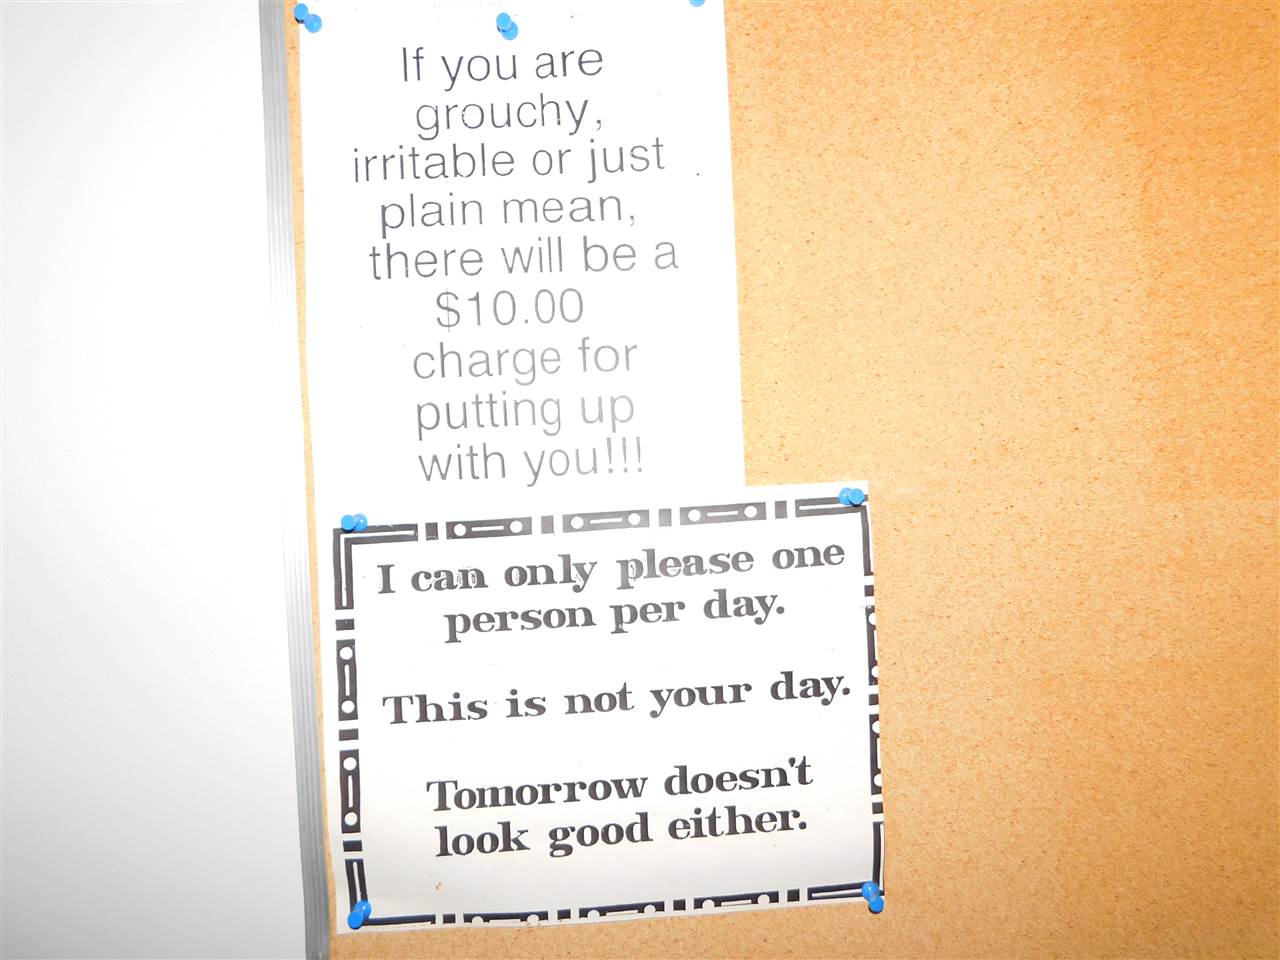 If you are
grouchy,
irritable or just
plain mean,
there will be a
$10.00
charge for
putting up
with you!!!
I can only please one
person per day.
This is not your day.
Tomorrow doesn't
look good either.